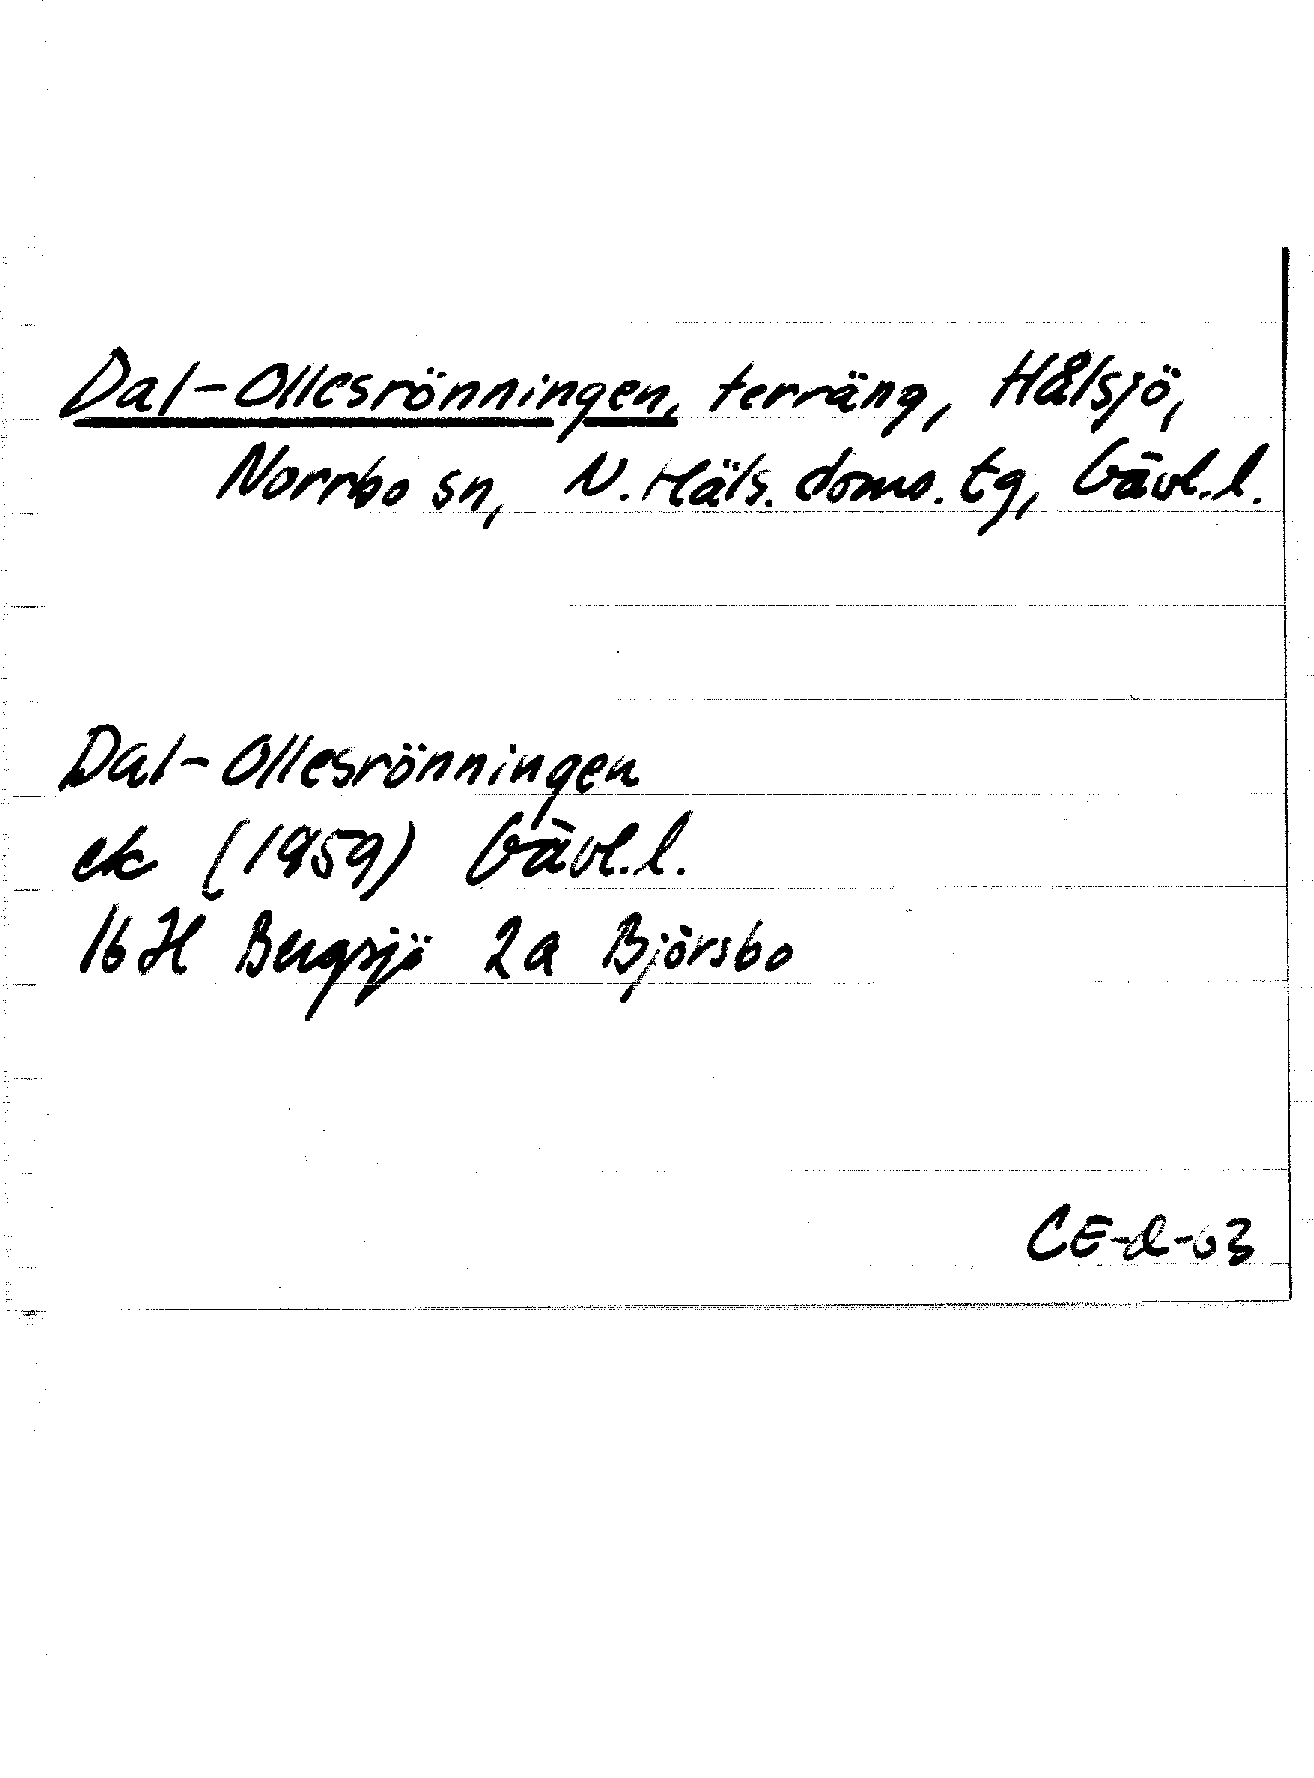 Dal-Ollesrönningen, terräng, Hålsjö,
Norrbo sn, N. Häls. doms. tg, Gävl. l.
Dal-Ollesrönningen
ek (1959) Gävl. l.
16H Bergsjö 2a Björsbo
CE-d-63